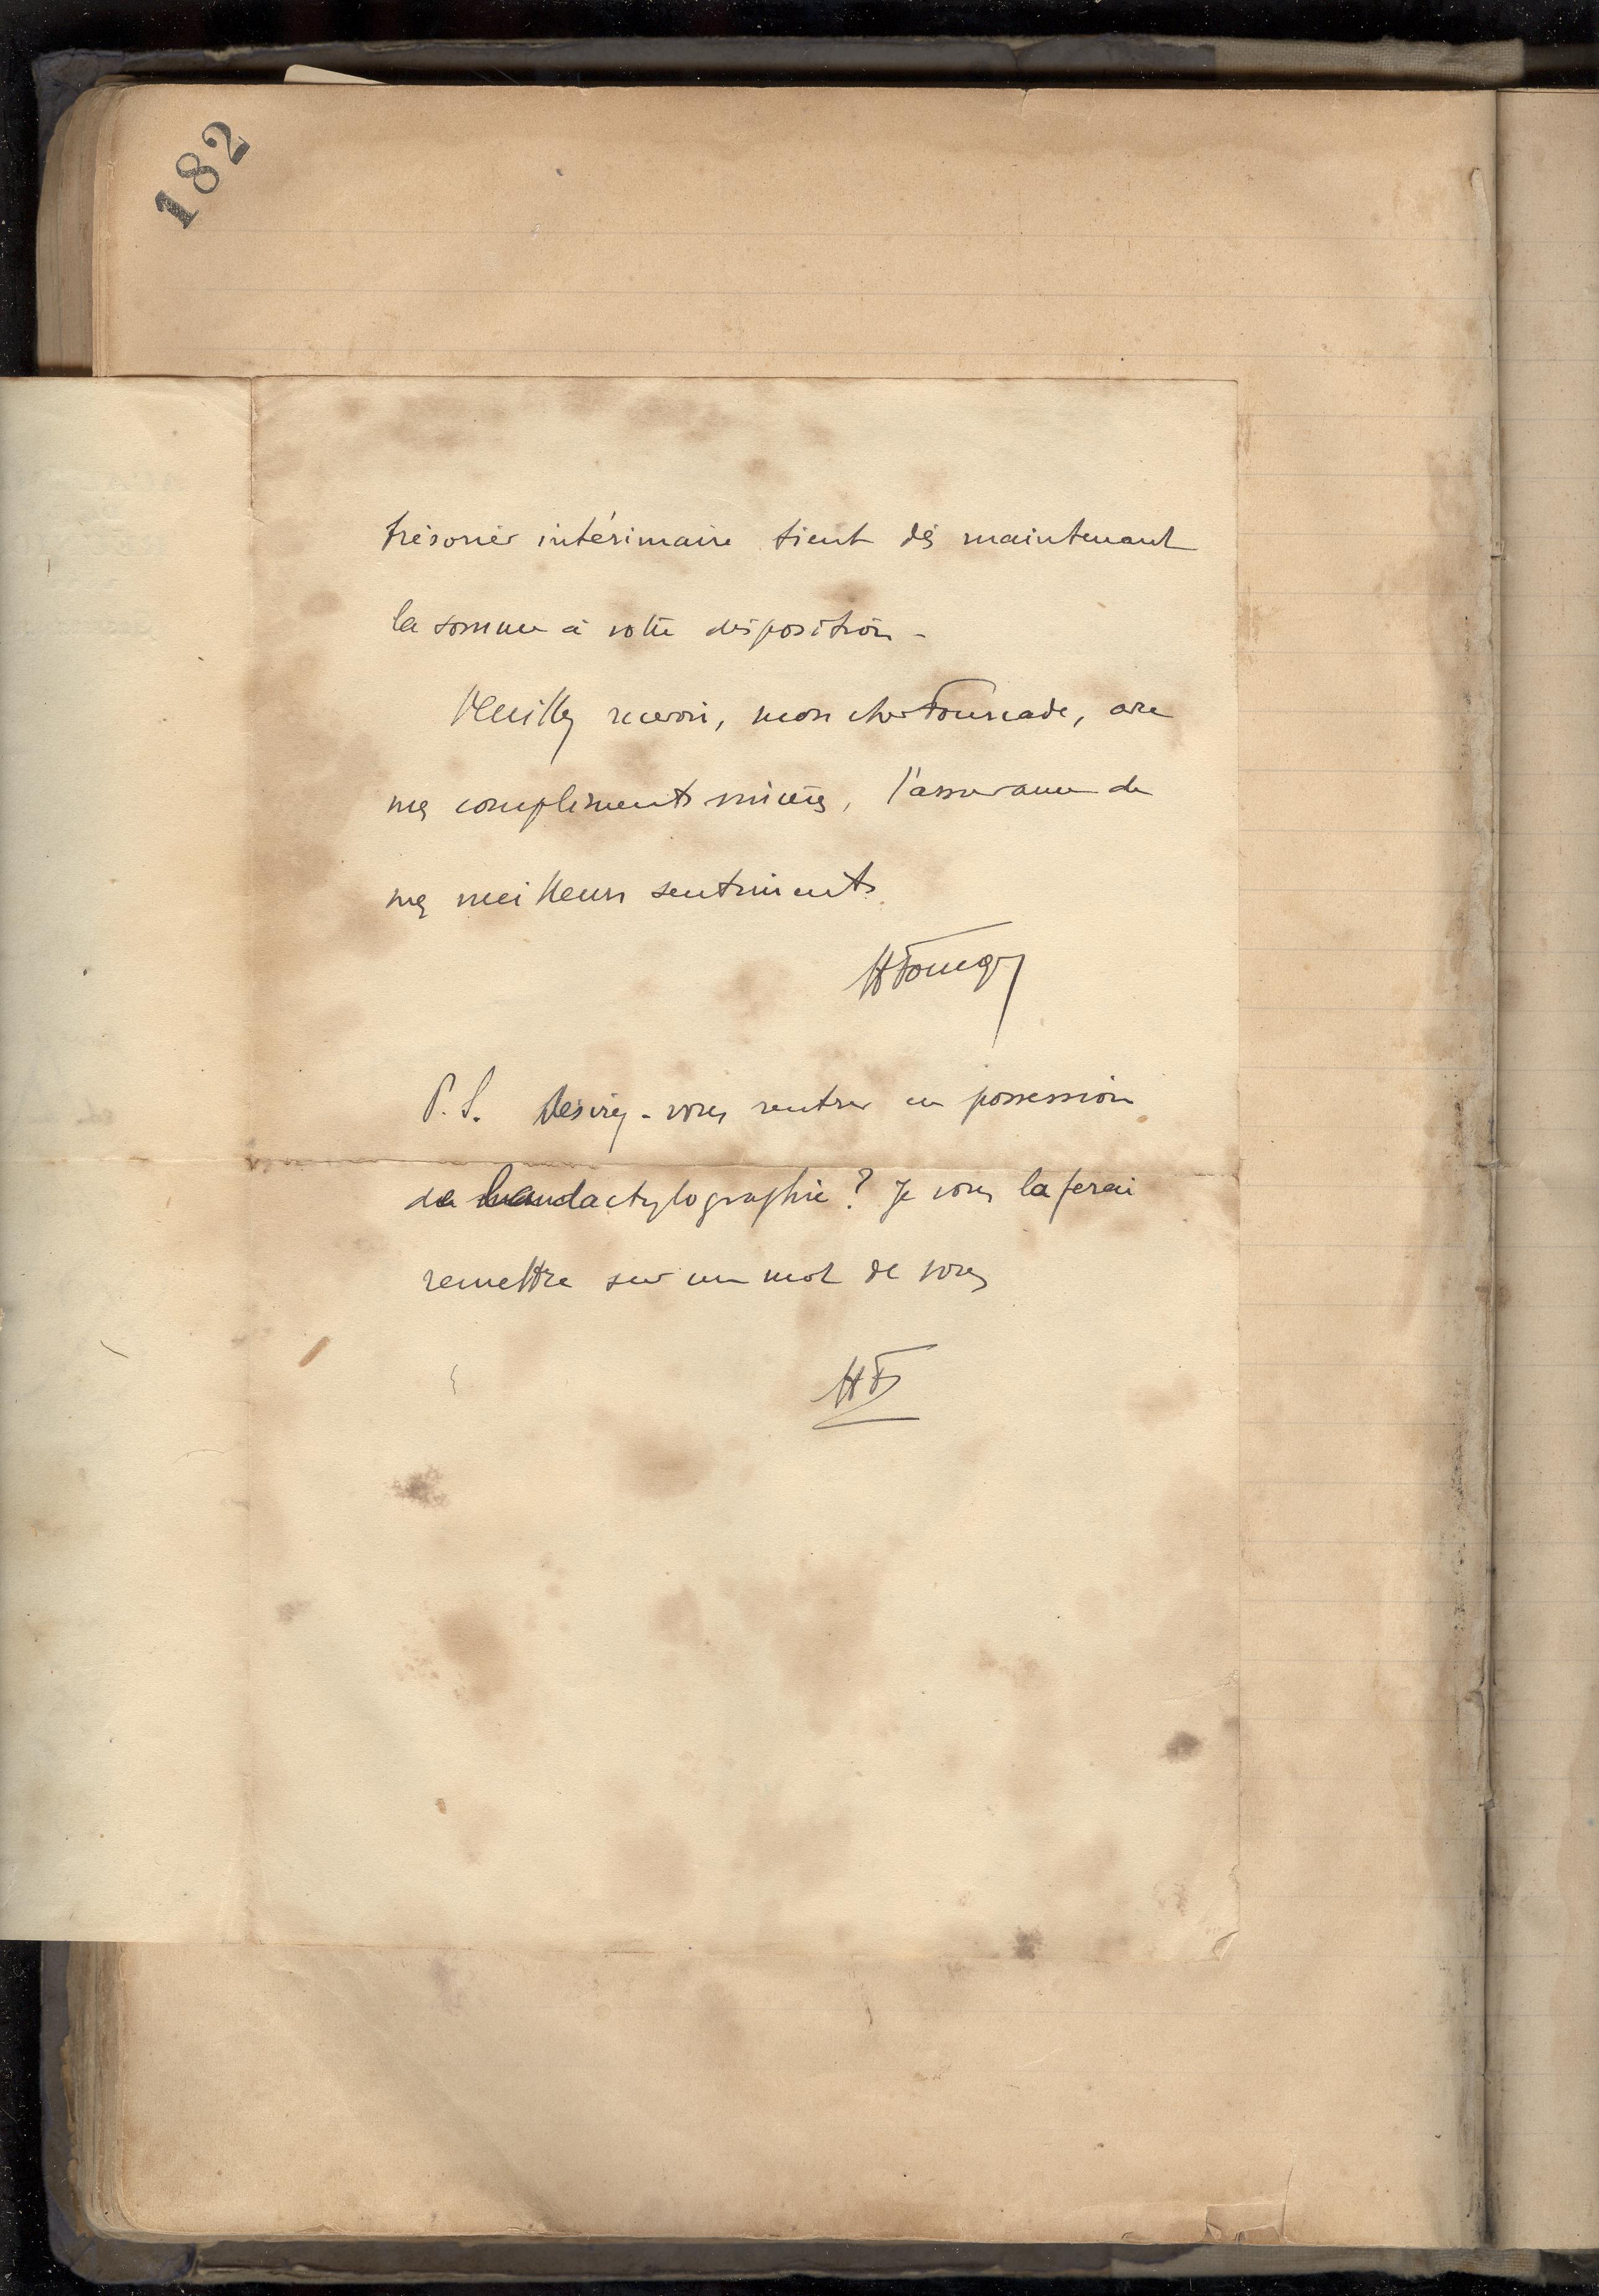 182
trésorier intérimaire tient dès maintenant
la somme à votre disposition -
Veuillez recevoir, mon cher Fourcade, avec
mes compliments sincères, l'assurance de
mes meilleurs sentiments
P. S. Désirez-vous rentrer en possession
de la dactylographie ? Je vous la ferai
remettre sur un mot de vous
HF